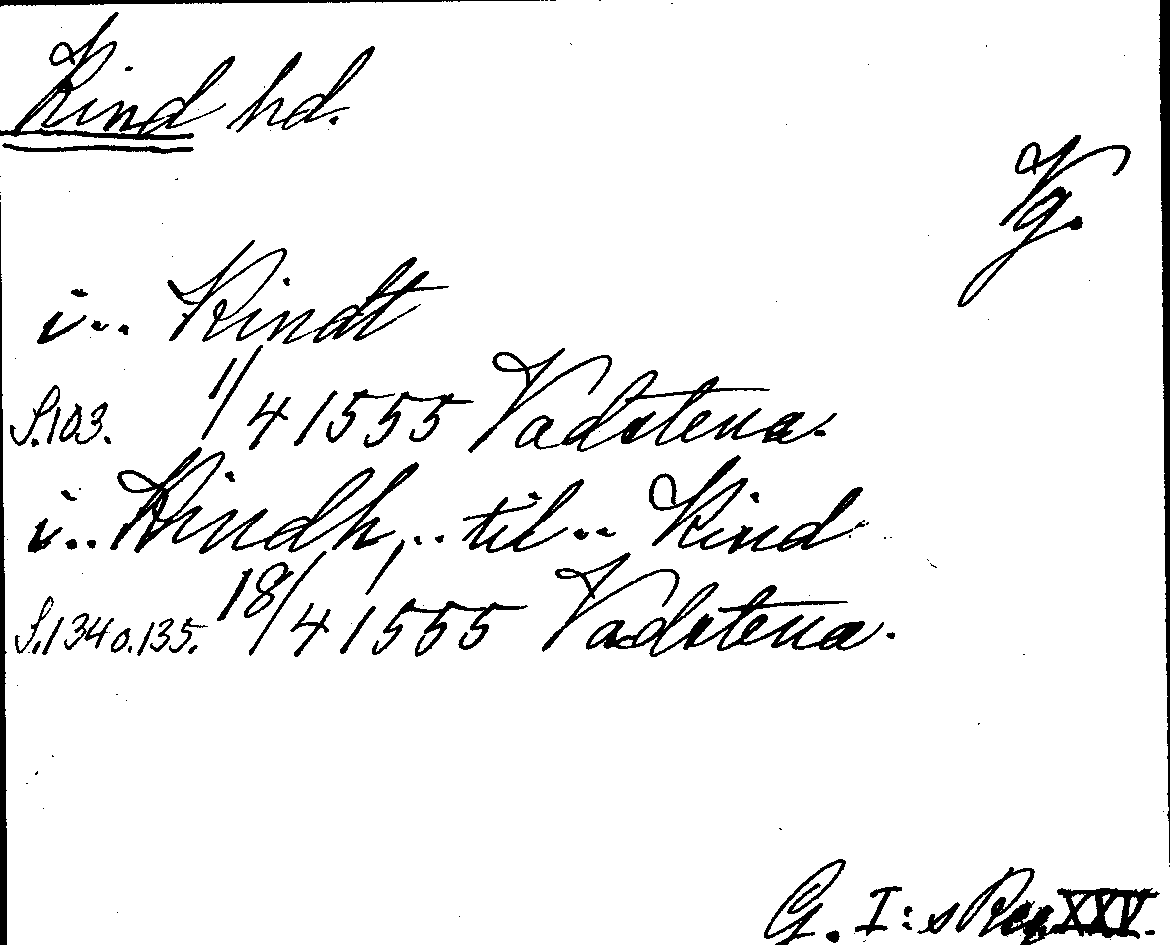 Kind hd.
Vg.
i.. Kindt
S.103. 1/4 1555 Vadstena.
i.. Kindh,.. til.. Kind
S.134 o.135. 18/4 1555 Vadstena.
G. I:s Reg XXV.